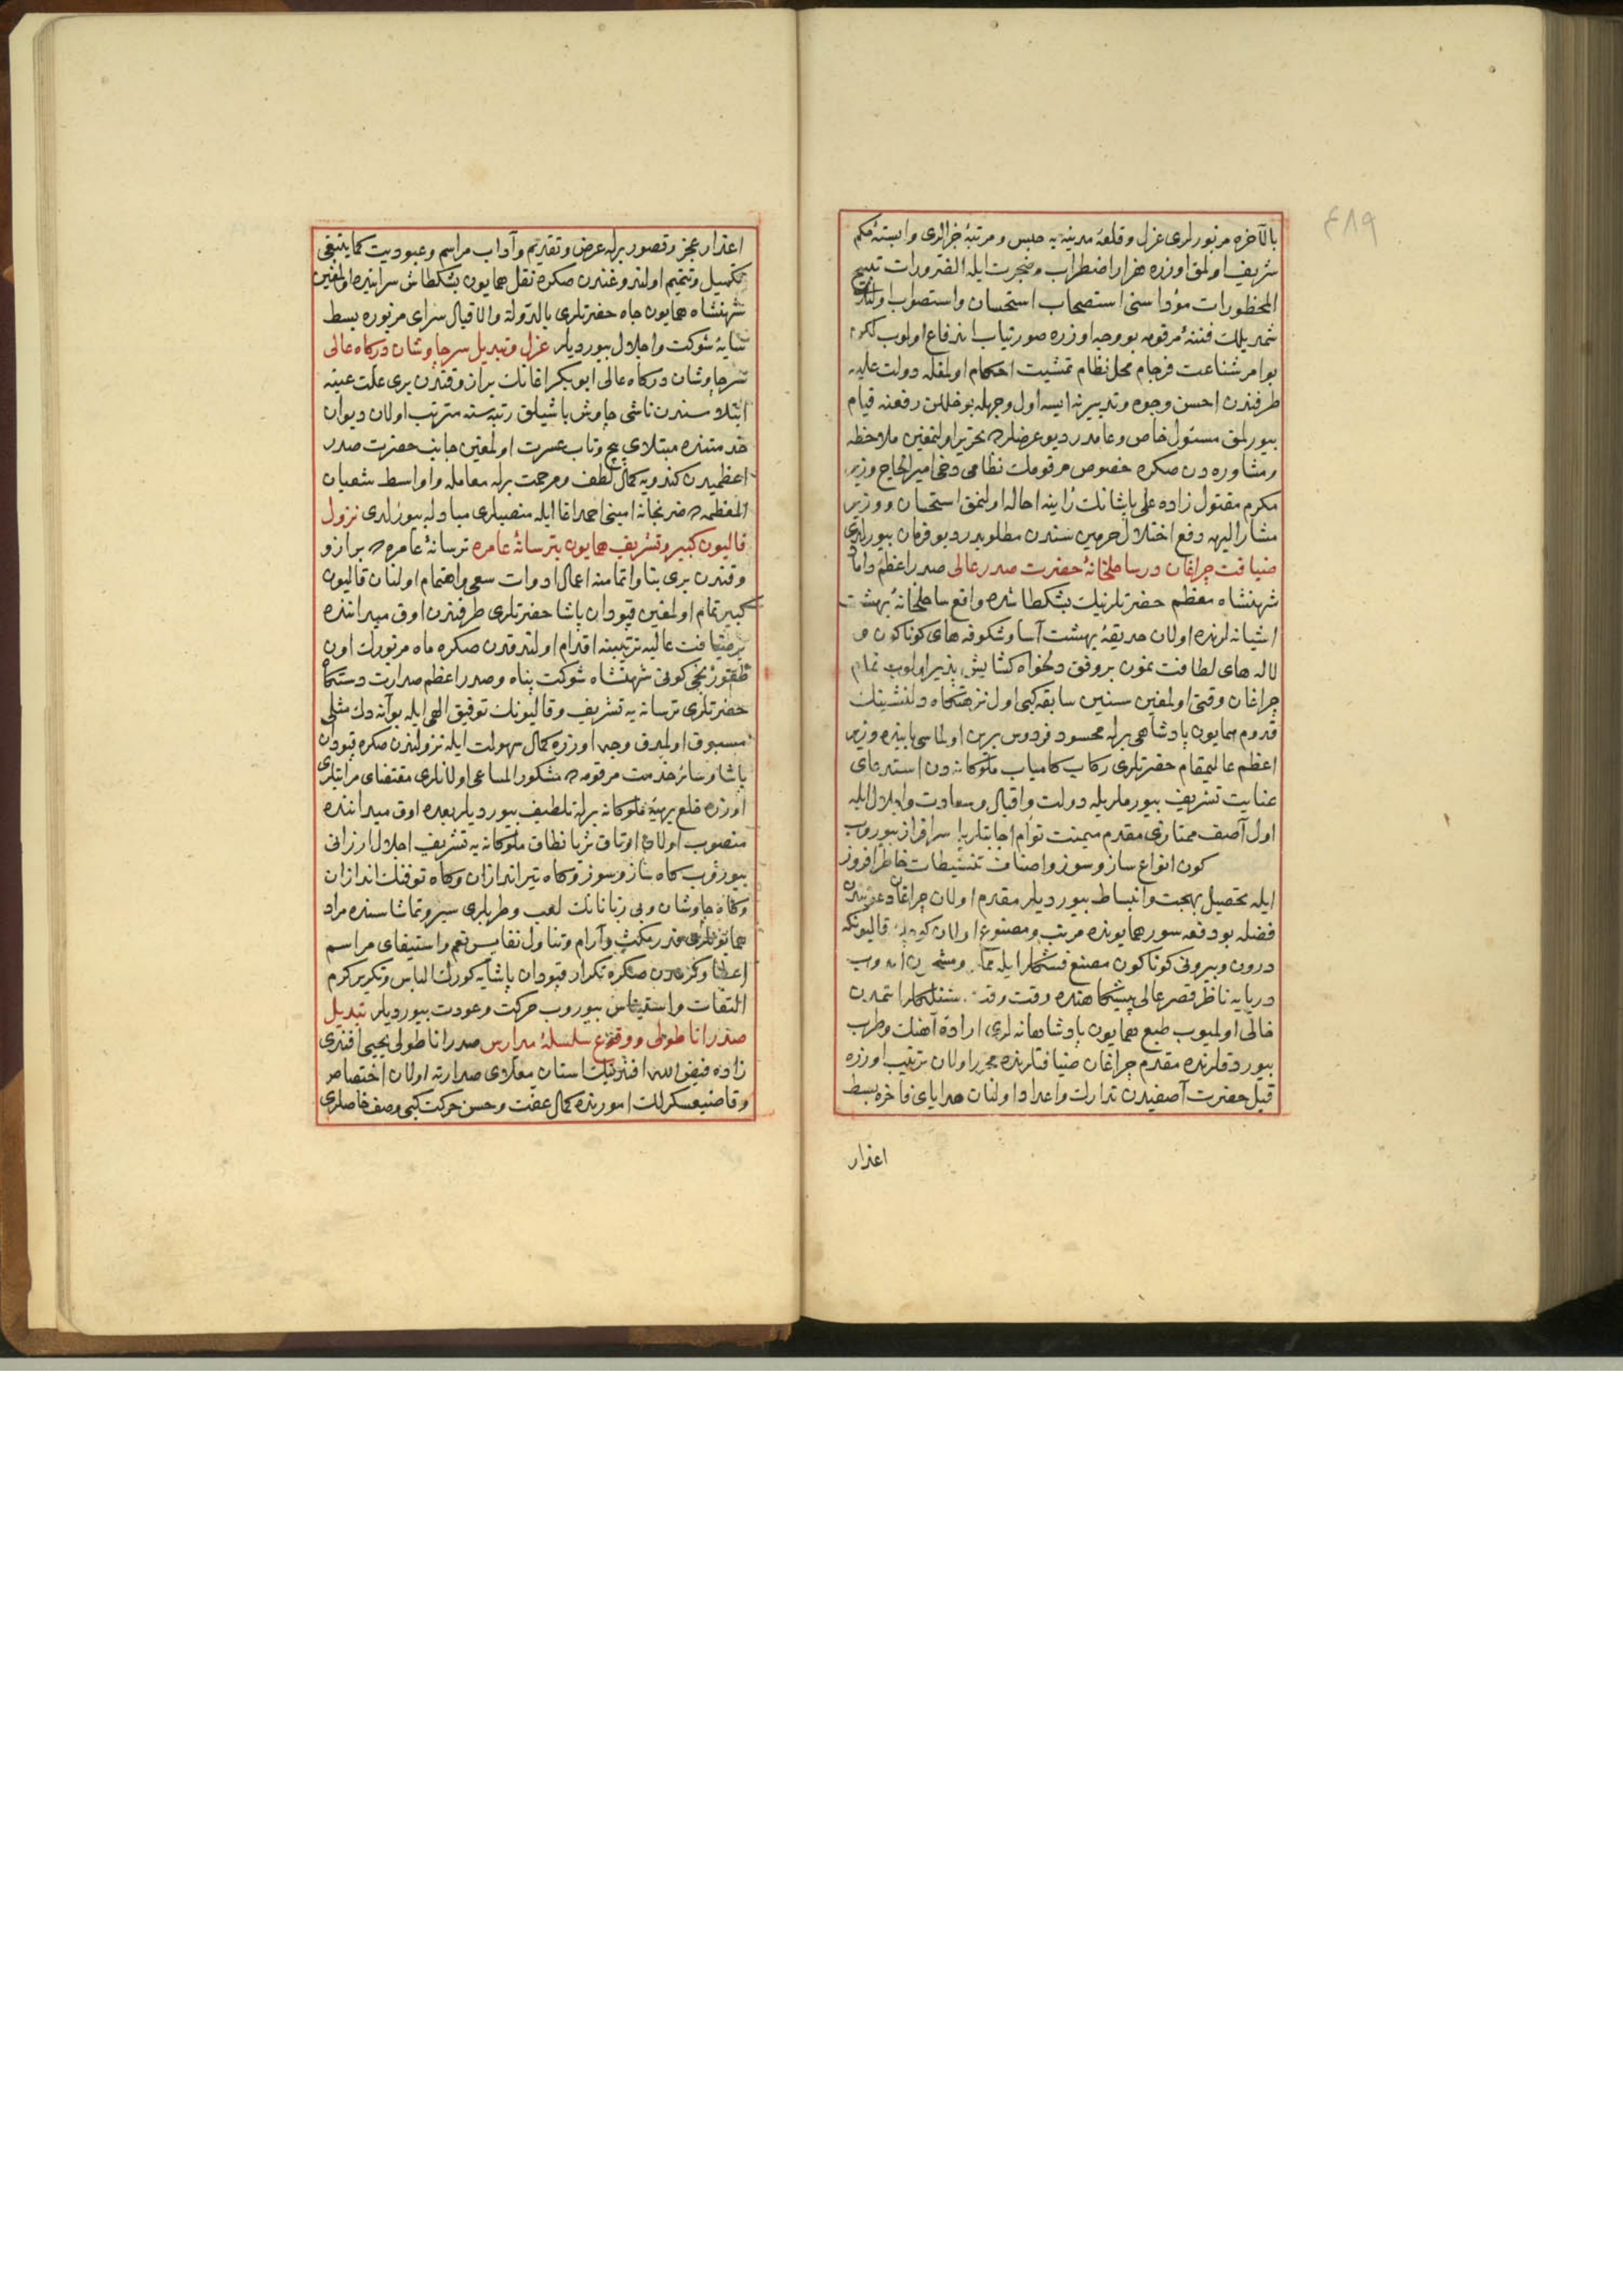 ٤٨٩
بالآخره مزبورلری عزل و قلعهٔ مدینه‌یه حبس و مرتبهٔ جزالری وابستهٔ حکم
شریف اولمق اوزره هزار اضطراب و ضجرت ایله الضرورات تبیح
المحظورات مؤداسنی استصحاب استحسان و استصواب
فتنهٔ مرقومه بو وجه اوزره صورتیاب اندفاع اولوب لکن
بو امر شناعت فرجام مخل نظام تمشیت احکام اولمغله دولت علیه
طرفندن احسن وجوه و تدبیر نه ایسه اول وجهله بو خللک رفعنه قیام
بیورلمق مسئول خاص و عامدر دیو عرضلر تحریر اولنمغین ملاحظه
و مشاوره‌دن صکره خصوص مرقومک نظامی دخی امیرالحاج وزیر
مکرم مقتول زاده علی پاشانک رأینه احاله اولنمق استحسان و وزیر
مشار الیهه دفع اختلال حرمین سندن مطلوبدر دیو فرمان بیورلدی
ضیافت چراغان در ساحلخانهٔ حضرت صدر عالی صدر اعظم و داماد
شهنشاه معظم حضرتلرینک بشکطاشده واقع ساحلخانهٔ بهشت
اشیانه‌لرنده اولان حدیقهٔ بهشت آسا و شکوفه‌های کوناکون و
لاله‌های لطافت نمون بر وفق دلخواه کشایش پذیر اولوب تمام
چراغان وقتی اولمغین سنین سابقه کبی اول نزهتکاه دلنشینک
قدوم همایون پادشاهی برله محسود فردوس برین اولماسی بابنده وزیر
اعظم عالیمقام حضرتلری رکاب کامیاب ملوکانه‌دن استدعای
عنایت تشریف بیورملریله دولت و اقبال و سعادت و اجلال ایله
اول آصف ممتازی مقدم میمنت توأم اجابتلریله سرافراز بیوروب
کون انواع ساز و سوز و اصناف تنشیطات خاطر افروز
ایله تحصیل بهجت و انبساط بیوردیلر مقدم اولان چراغان دعوتندن
فضله بو دفعه سور همایونده مرتب و مصنوع اولان قالیونک
درون و بیرونی کوناکون مصنع فشنکلر ایله
دریایه ناظر قصر عالی پیشکاهنده وقت
خالی اولمیوب طبع همایون پادشاهانه‌لری اراده آهنک و طرب
بیوردقلرنده مقدم چراغان ضیافتلرنده محرر اولان ترتیب اوزره
قبل حضرت آصفیدن تدارک و اعداد اولنان هدایای فاخره بسط
اعذار
اعذار عجز و قصور برله عرض و تقدیم و آداب مراسم و عبودیت کما ینبغی
تکمیل و تتمیم اولندوغندن صکره نقل همایون بشکطاش سراینه اولمغین
شهنشاه همایون جاه حضرتلری بالدولة والاقبال سرای مزبوره بسط
سایهٔ شوکت و اجلال بیوردیلر عزل و تبدیل سرچاوشان درکاه عالی
سرچاوشان درکاه عالی ابوبکر اغانک براز وقتدن بری علت عینه
ابتلاسندن ناشی چاوش باشیلق رتبه‌سنه مترتب اولان دیوان
خدمتنده مبتلای پیچ و تاب عسرت اولمغین جانب حضرت صدر
اعظمیدن کندویه کمال لطف و مرحمت برله معامله و اواسط شعبان
المعظمده ضربخانه امینی احمد اغا ایله منصبلری مبادله بیورلدی نزول
قالیون کبیر و تشریف همایون بترسانهٔ عامره ترسانهٔ عامره‌ده براز
وقتدن بری بنا و اتمامنه اعمال ادوات سعی و اهتمام اولنان قالیون
کبیر تمام اولمغین قپودان پاشا حضرتلری طرفندن اوق میداننده
بر ضیافت عالیه ترتیبنه اقدام اولندقدن صکره ماه مزبورک اون
طقوزنجی کونی شهنشاه شوکت پناه و صدر اعظم صدارت دستکاه
حضرتلری ترسانه‌یه تشریف و قالیونک توفیق الهی ایله بو آنه دک مثلی
مسبوق اولمدق وجه اوزره کمال سهولت ایله نزولندن صکره قپودان
پاشا و سائر خدمت مرقومه‌ده مشکور المساعی اولانلری مقتضای مراتبلری
اوزره خلع بهیهٔ ملوکانه برله تلطیف بیوردیلر بعده اوق میداننده
منصوب اولان اوتاق ثریا نطاق ملوکانه‌یه تشریف اجلال ارزانی
بیوروب کاه ساز و سوز و کاه تیراندازان و کاه توفنک اندازان
و کاه چاوشان و بی زبانانک لعب و طربلری سیر و تماشاسنده مراد
همایونلری قدر مکث و آرام و تناول نفایس نعم و استیفای مراسم
صکره تکرار قپودان پاشایه کورک الباس و تکریر کرم
التفات و استیناس بیوروب حرکت و عودت بیوردیلر تبدیل
صدر اناطولی و وقوع سلسلهٔ مدارس صدر اناطولی یحیی افندی
زاده فیض الله افندینک استان معلای صدارته اولان اختصاص
و قاضیعسکرلک امورنده کمال عفت و حسن حرکت کبی وصف خاصلری